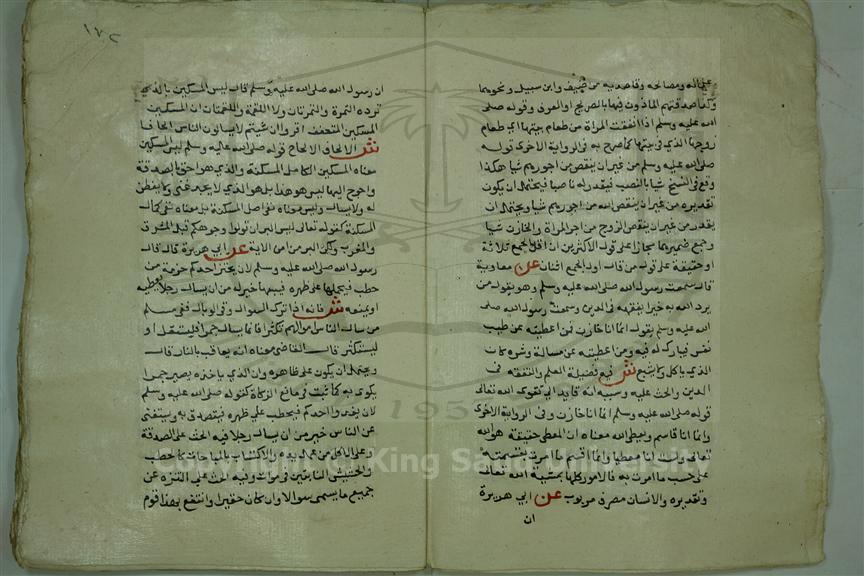 عياله ومصالحه وقاصديه من ضيف وابن سبيل ونحوهما
وكذا صدقتهم الماذون فيها بالصريح او العرف وقوله صلى
الله عليه وسلم اذا انفقت المراة من طعام بيتها اي طعام
زوجها الذي في بيتها كما صرح به في الرواية الاخرى قوله
صلى الله عليه وسلم من غير ان ينقص من اجورهم شيا هكذا
وقع في النسخ شيا بالنصب فيقدر له ناصبا فيحتمل ان يكون
تقديره من غير ان ينقص الله من اجورهم شيا ويحتمل ان
يقدر من غير ان ينقص الزوج من اجر المراة والخازن شيا
وجمع ضميرهما مجازا على قول الاكثرين ان اقل الجمع ثلاثة
او حقيقة على قول من قال اول الجمع اثنان عن معاوية
قال سمعت رسول الله صلى الله عليه وسلم وهو يقول من
يرد الله به خيرا يفقهه في الدين وسمعت رسول الله صلى
الله عليه وسلم يقول انما انا خازن فمن اعطيته عن طيب
نفس فيبارك له فيه ومن اعطيته عن مسالة وشره كان
الذي ياكل ولا يشبع ش فيه فضيلة العلم والتفقه في
الدين والحث عليه وسببه انه قايد الى تقوى الله تعالى
قوله صلى الله عليه وسلم انما انا خازن وفي الرواية الاخرى
وانما انا قاسم ويعطي الله معناه ان المعطي حقيقة هو الله
تعالى ولست انا معطيا وانما اقسم ما امرت بقسمته
على حسب ما امرت به فالامور كلها بمشية الله تعالى
وتقديره والانسان مصرف مربوب عن ابي هريرة
ان
١٧٢
ان رسول الله صلى الله عليه وسلم قال ليس المسكين بالذي
ترده التمرة والتمرتان ولا اللقمة واللقمتان ان المسكين
المسكين المتعفف اقروا ان شيتم لا يسالون الناس الحافا
ش الالحاف الالحاح قوله صلى الله عليه وسلم ليس المسكين
معناه المسكين الكامل المسكنة والذي هو احق بالصدقة
واحوج اليها ليس هو هذا بل هو الذي لا يجد غنى ولا يفطن
له ولا يسال وليس معناه نفي اصل المسكنة بل معناه نفي كمال
المسكنة كقوله تعالى ليس البر ان تولوا وجوهكم قبل المشرق
والمغرب ولكن البر من امن الاية عن ابي هريرة قال قال
رسول الله صلى الله عليه وسلم لان يحتزم احدكم حزمة من
حطب فيحملها على ظهره فيبيعها خير له من ان يسال رجلا يعطيه
او يمنعه ش فانه اذا ترك السوال وقي الوبال ففي مسلم
من سال الناس اموالهم تكثرا فانما يسال جمرا فليستقل او
ليستكثر قال القاضي معناه انه يعاقب بالنار قال
ويحتمل ان يكون على ظاهره وان الذي ياخذه يصير جمرا
يكوى به كما ثبت في مانع الزكاة كقوله صلى الله عليه وسلم
لان يغدو احدكم فيحطب على ظهره فيتصدق به ويستغني
عن الناس خير من ان يسال رجلا فيه الحث على الصدقة
وعلى الاكل من عمل يده والاكتساب بالمباحات كالحطب
والحشيش النابتين في موات وفيه الحث على التنزه عن
جميع ما يسمى سوالا وان كان حقيرا وانتفع بهذا قوم
Copyright © King Saud University
1957